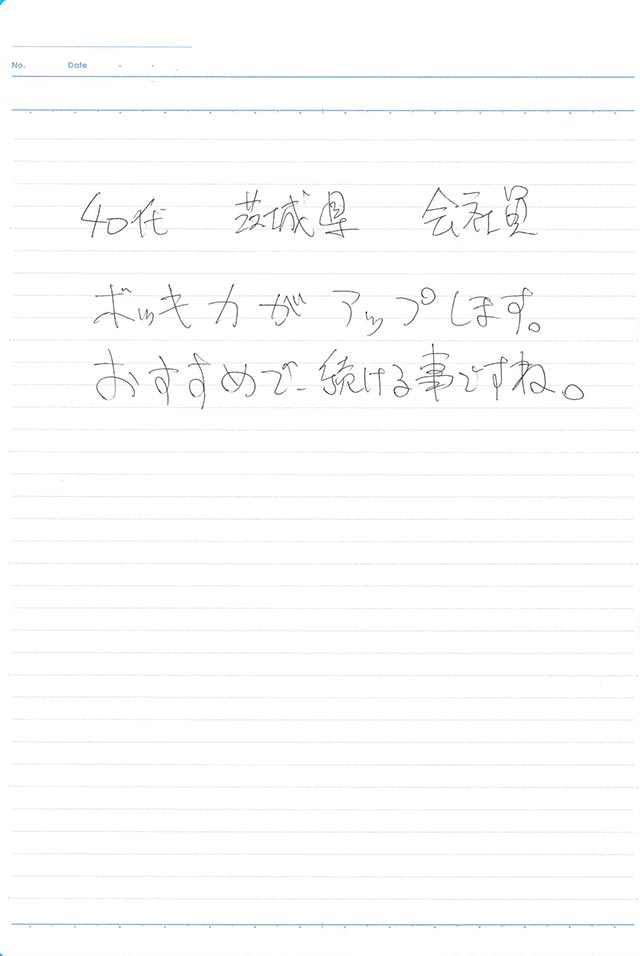 No. Date
40代 茨城県 会社員
ボッキ力がアップします。
おすすめで、続ける事ですね。